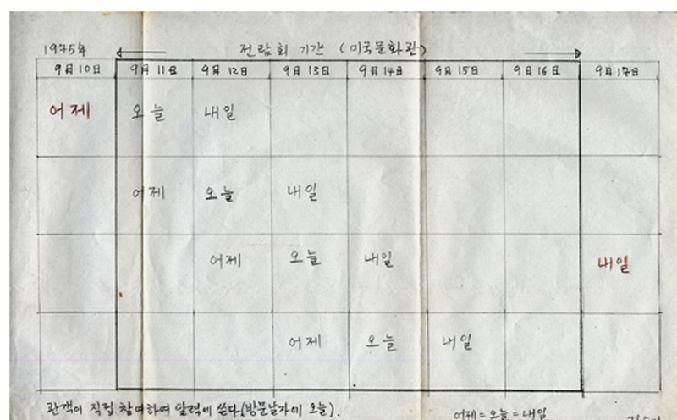 1975年
전람회 기간 (미국문화관)
9月10日 9月11日 9月12日 9月13日 9月14日 9月15日 9月16日 9月17日
어제 오늘 내일
어제 오늘 내일
어제 오늘 내일 내일
어제 오늘 내일
관객이 직접 참여하여 달력에 쓴다(방문날자에 오늘).
어제=오늘=내일